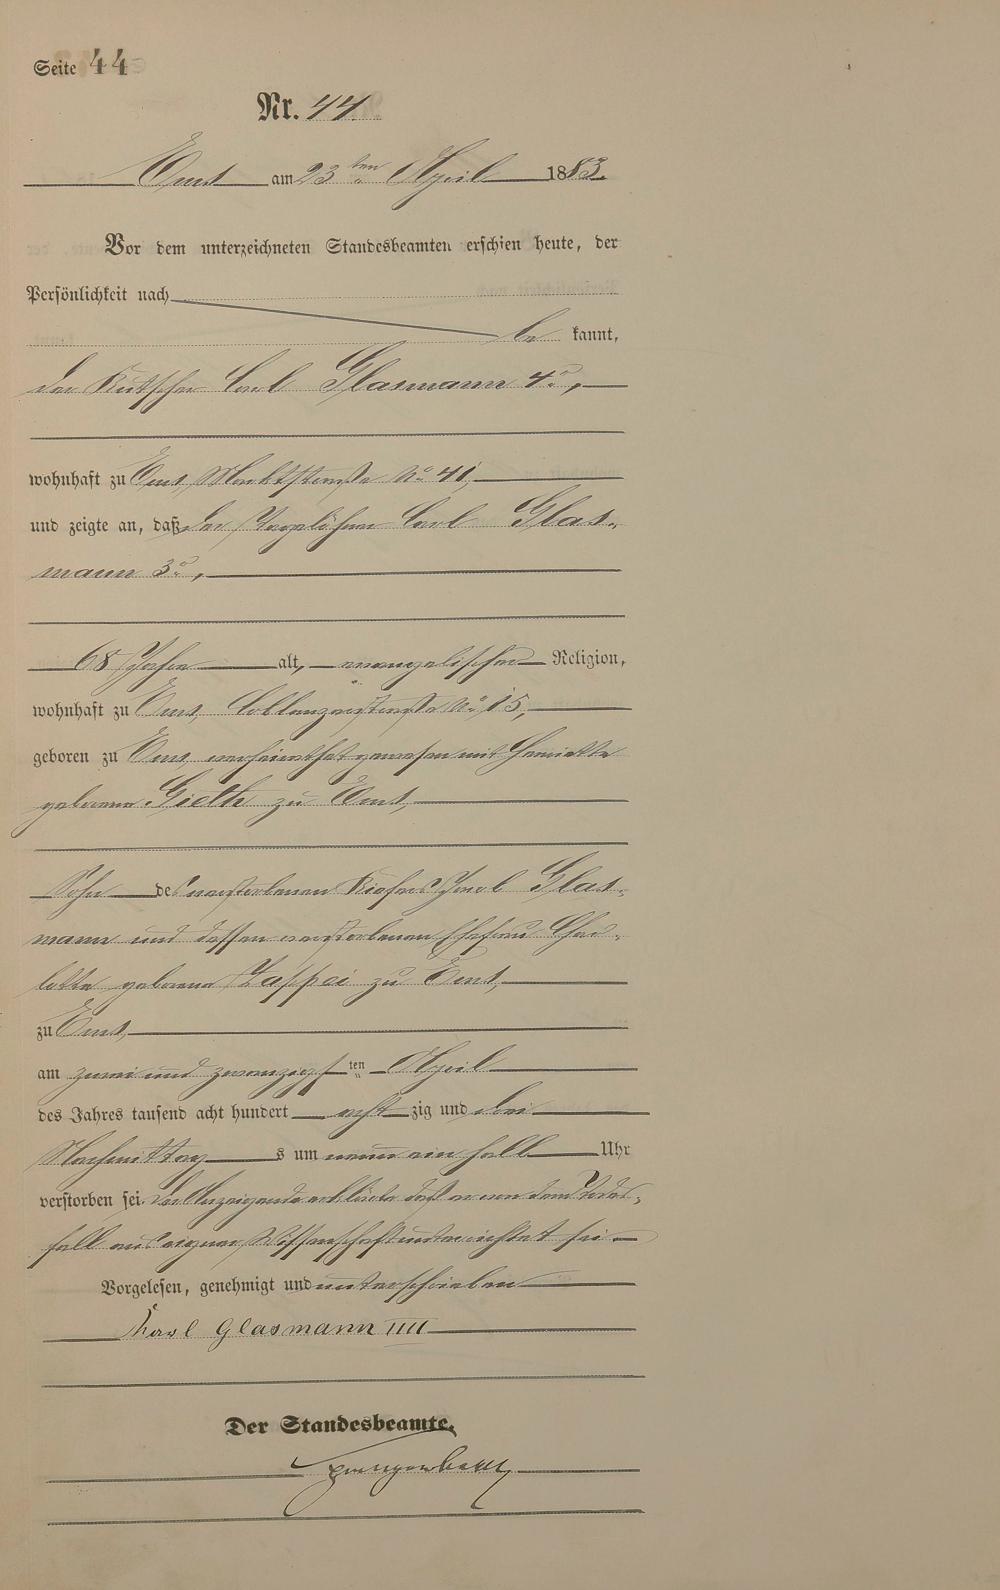 Seite 44
Nr. 44.
Ems am 23ten April 1883.
Vor dem unterzeichneten Standesbeamten erschien heute, der
Persönlichkeit nach
be kannt,
der Kutscher Carl Glasmann 4r,
wohnhaft zu Ems, Marktstraße No 41,
und zeigte an, daß der Taglöhner Carl Glas-
mann 3r,
68 Jahre alt, evangelischer Religion,
wohnhaft zu Ems, Coblenzerstraße No 15,
geboren zu Ems, verheirathet gewesen mit Henriette
geborene Gieth zu Ems,
Sohn des verstorbenen Küfers Jacob Glas-
mann und dessen verstorbenen Ehefrau Char-
lotte geborene zu Ems,
zu Ems,
am zwei und zwanzigsten April
des Jahres tausend acht hundert acht zig und drei
Nachmittag s um neun ein halb Uhr
verstorben sei. Der Anzeigende erklärte daß er von dem Todes-
fall aus eigner Wissenschaft unterrichtet sei
Vorgelesen, genehmigt und unterschrieben
Karl Glasmann IIII
Der Standesbeamte.